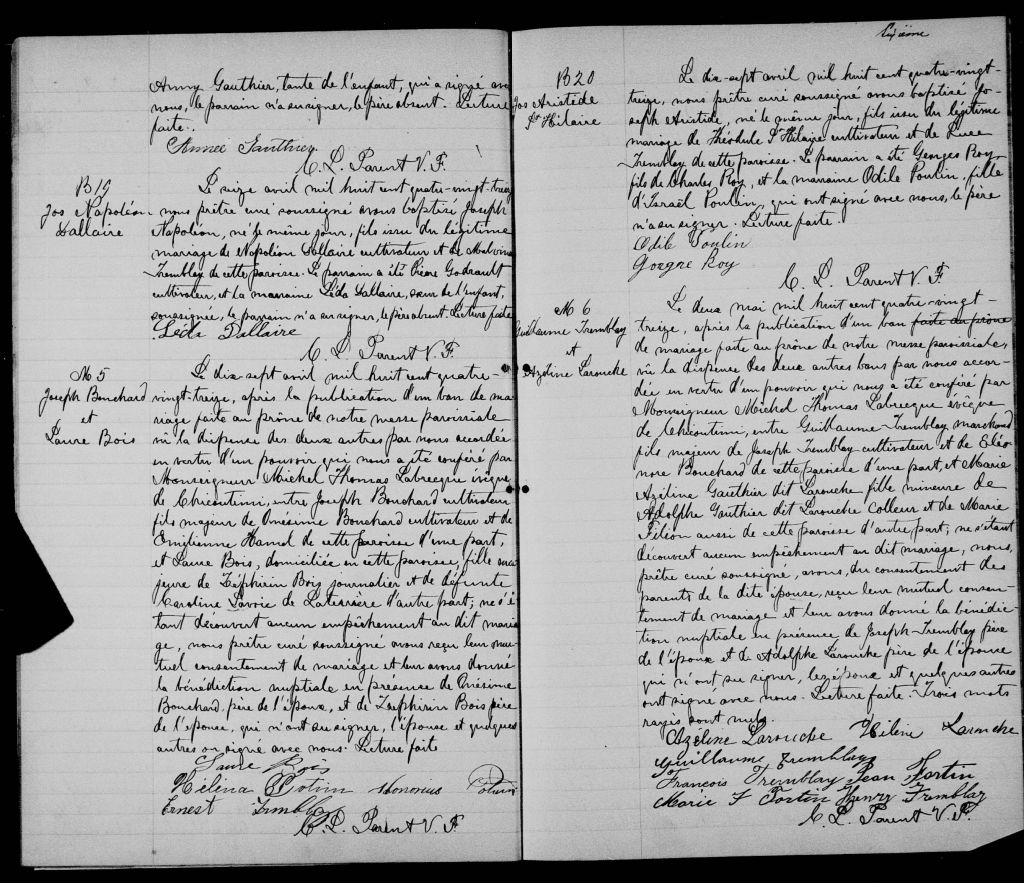 Anny Gauthier, tante de l'enfant, qui a signé avec
nous, le parrain n'a su signer, le père absent. Lecture
faite.
C. L. Parent V. F.
B 19
Jos Napoléon
Dallaire
Le seize avril mil huit cent quatre-vingt-treize
nous prêtre curé soussigné avons baptisé Joseph
Napoléon, né le même jour, fils issu du légitime
mariage de Napoléon Dallaire cultivateur et de Malvina
Tremblay de cette paroisse. Le parrain a été Godrault
cultivateur, et la marraine Léda Dallaire, sœur de l'enfant,
soussignée, le parrain n'a su signer, le père absent Lecture faite
Léda Dallaire
C. L. Parent V. F.
M 5
Joseph Bouchard
et
Laure Bois
Le dix-sept avril mil huit cent quatre-
vingt-treize, après la publication d'un ban de ma-
riage faite au prône de notre messe paroissiale
vû la dispense des deux autres par nous accordée
en vertu d'un pouvoir qui nous a été conféré par
Monseigneur Michel Thomas Labrecque évêque
de Chicoutimi, entre Joseph Bouchard cultivateur
fils majeur de Onésime Bouchard cultivateur et de
Emilienne Hamel de cette paroisse d'une part,
et Laure Bois, domiciliée en cette paroisse, fille ma-
jeure de Zéphirin Bois journalier et de défunte
Caroline Savoie de Laterrière d'autre part; ne s'é-
tant découvert aucun empêchement au dit maria-
ge, nous prêtre curé soussigné avons reçu leur mu-
tuel consentement de mariage et leur avons donné
la bénédiction nuptiale en présence de Onésime
Bouchard, père de l'époux, et de Zéphirin Bois père
de l'épouse, qui n'ont su signer, l'épouse et quelques
autres on signé avec nous. Lecture faite
Laure Bois
Hélèna Potvin Honorius Potvin
Ernest Tremblay
C. L. Parent V. F.
B 20
Jos Aristède
St Hilaire
Le dix-sept avril mil huit cent quatre-vingt-
treize, nous prêtre curé soussigné avons baptisé Jo-
seph Aristède, né le même jour, fils issu du légitime
mariage de Théodule St Hilaire cultivateur et de
Tremblay de cette paroisse. Le parrain a été Georges Roy
fils de Charles Roy, et la marraine Odile Poulin, fille
d'Israël Poulin, qui ont signé avec nous, le père
n'a su signer. Lecture faite.
Odile Poulin
Goegre Roy
C. L. Parent V. F.
M 6
Guillaume Tremblay
et
Azeline Larouche
Le deux mai mil huit cent quatre-vingt-
treize, après la publication d'un ban faite au prône
de mariage faite au prône de notre messe paroissiale,
vû la dispense des deux autres bans par nous accor-
dée en vertu d'un pouvoir qui nous a été conféré par
Monseigneur Michel Thomas Labrecque évêque
de Chicoutimi, entre Guillaume Tremblay marchand
fils majeur de Joseph Tremblay cultivateur et de Eléo-
nore Bouchard de cette paroisse d'une part, et Marie
Azéline Gauthier dit Larouche fille mineure de
Adolphe Gauthier dit Larouche Colleur et de Marie
Filion aussi de cette paroisse d'autre part; ne s'étant
découvert aucun empêchement au dit mariage, nous,
prêtre curé soussigné, avons, du consentement des
parents de la dite épouse, reçu leur mutuel consen-
tement de mariage et leur avons donné la bénédic-
tion nuptiale en présence de Joseph Tremblay père
de l'époux et de Adolphe Larouche père de l'épouse
qui n'ont su signer, les époux et quelques autres
ont signé avec nous. Lecture faite. Trois mots
rayés sont nuls.
Azeline Larouche Hélène Larouche
Guillaume Tremblay
Francois Tremblay Jean Fortin
Marie F Fortin Henry Tremblay
C. L. Parent V. F.